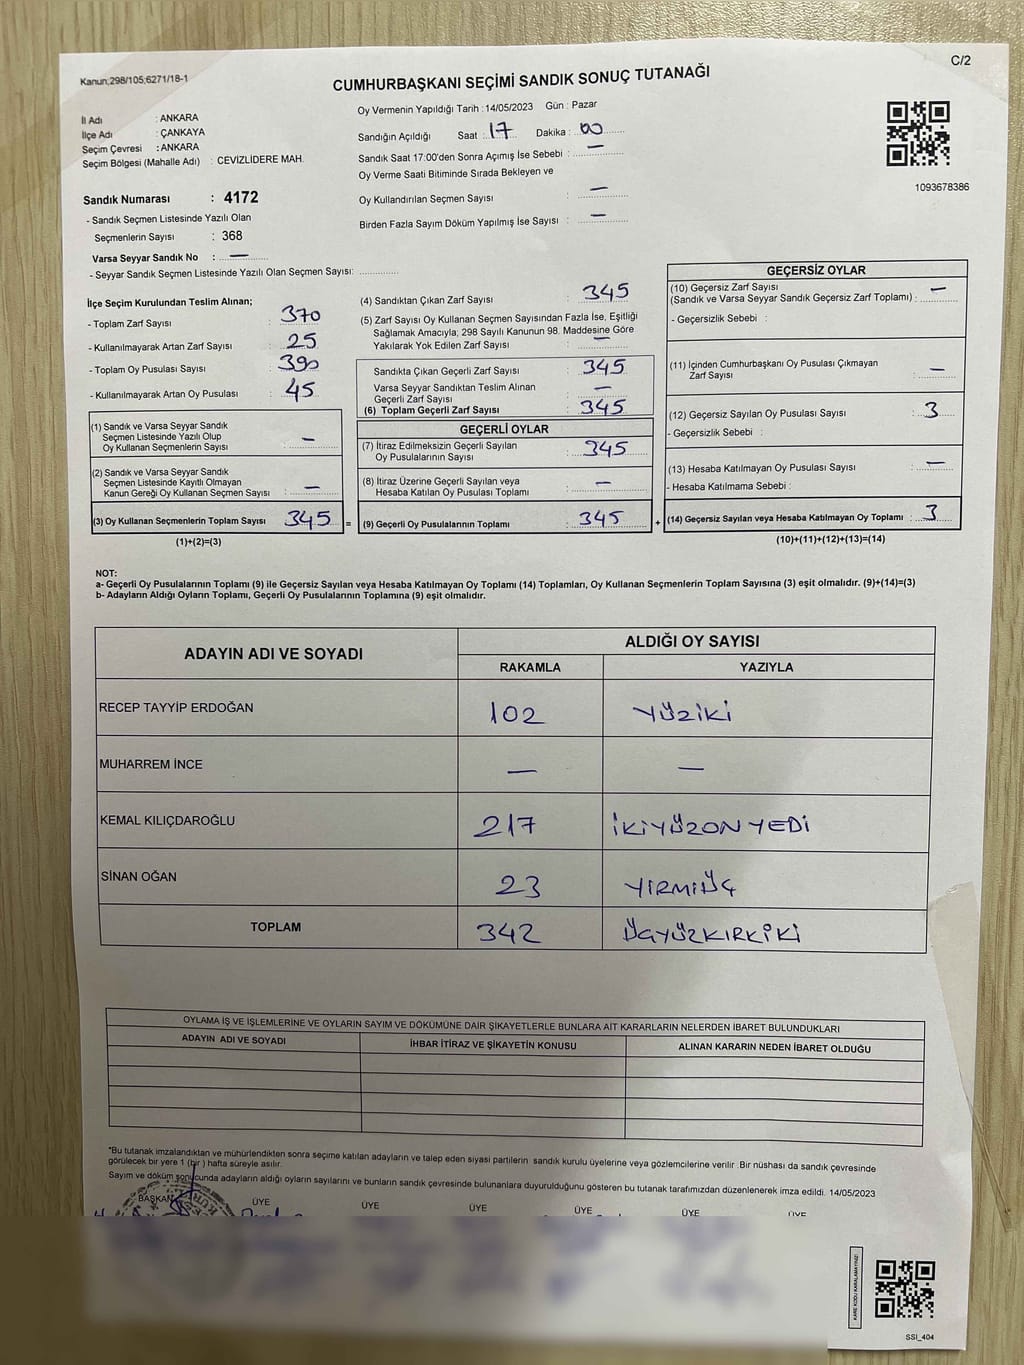 Kanun;298/105;6271/18-1
C/2
CUMHURBAŞKANI SEÇİMİ SANDIK SONUÇ TUTANAĞI
İl Adı : ANKARA
İlçe Adı : ÇANKAYA
Seçim Çevresi : ANKARA
Seçim Bölgesi (Mahalle Adı) : CEVİZLİDERE MAH.
Sandık Numarası : 4172
- Sandık Seçmen Listesinde Yazılı Olan
Seçmenlerin Sayısı : 368
Varsa Seyyar Sandık No : —
- Seyyar Sandık Seçmen Listesinde Yazılı Olan Seçmen Sayısı: ..............
Oy Vermenin Yapıldığı Tarih :14/05/2023 Gün : Pazar
Sandığın Açıldığı Saat : 17 Dakika : 00
Sandık Saat 17:00'den Sonra Açımış İse Sebebi : —
Oy Verme Saati Bitiminde Sırada Bekleyen ve
Oy Kullandırılan Seçmen Sayısı : —
Birden Fazla Sayım Döküm Yapılmış İse Sayısı : —
1093678386
İlçe Seçim Kurulundan Teslim Alınan;
- Toplam Zarf Sayısı : 370
- Kullanılmayarak Artan Zarf Sayısı : 25
- Toplam Oy Pusulası Sayısı : 390
- Kullanılmayarak Artan Oy Pusulası : 45
(1) Sandık ve Varsa Seyyar Sandık
Seçmen Listesinde Yazılı Olup
Oy Kullanan Seçmenlerin Sayısı : —
(2) Sandık ve Varsa Seyyar Sandık
Seçmen Listesinde Kayıtlı Olmayan
Kanun Gereği Oy Kullanan Seçmen Sayısı : —
(3) Oy Kullanan Seçmenlerin Toplam Sayısı : 345 =
(1)+(2)=(3)
(4) Sandıktan Çıkan Zarf Sayısı : 345
(5) Zarf Sayısı Oy Kullanan Seçmen Sayısından Fazla İse, Eşitliği
Sağlamak Amacıyla; 298 Sayılı Kanunun 98. Maddesine Göre
Yakılarak Yok Edilen Zarf Sayısı : —
Sandıkta Çıkan Geçerli Zarf Sayısı : 345
Varsa Seyyar Sandıktan Teslim Alınan
Geçerli Zarf Sayısı : —
(6) Toplam Geçerli Zarf Sayısı : 345
GEÇERLİ OYLAR
(7) İtiraz Edilmeksizin Geçerli Sayılan
Oy Pusulalarının Sayısı : 345
(8) İtiraz Üzerine Geçerli Sayılan veya
Hesaba Katılan Oy Pusulası Toplamı : —
(9) Geçerli Oy Pusulalarının Toplamı : 345 +
GEÇERSİZ OYLAR
(10) Geçersiz Zarf Sayısı
(Sandık ve Varsa Seyyar Sandık Geçersiz Zarf Toplamı) : —
- Geçersizlik Sebebi :
(11) İçinden Cumhurbaşkanı Oy Pusulası Çıkmayan
Zarf Sayısı : —
(12) Geçersiz Sayılan Oy Pusulası Sayısı : 3
- Geçersizlik Sebebi :
(13) Hesaba Katılmayan Oy Pusulası Sayısı : —
- Hesaba Katılmama Sebebi :
(14) Geçersiz Sayılan veya Hesaba Katılmayan Oy Toplamı : 3
(10)+(11)+(12)+(13)=(14)
NOT:
a- Geçerli Oy Pusulalarının Toplamı (9) ile Geçersiz Sayılan veya Hesaba Katılmayan Oy Toplamı (14) Toplamları, Oy Kullanan Seçmenlerin Toplam Sayısına (3) eşit olmalıdır. (9)+(14)=(3)
b- Adayların Aldığı Oyların Toplamı, Geçerli Oy Pusulalarının Toplamına (9) eşit olmalıdır.
ADAYIN ADI VE SOYADI ALDIĞI OY SAYISI
RAKAMLA YAZIYLA
RECEP TAYYİP ERDOĞAN 102 YÜZİKİ
MUHARREM İNCE — —
KEMAL KILIÇDAROĞLU 217 İKİYÜZONYEDİ
SİNAN OĞAN 23 YİRMİÜÇ
TOPLAM 342 ÜÇYÜZKIRKİKİ
OYLAMA İŞ VE İŞLEMLERİNE VE OYLARIN SAYIM VE DÖKÜMÜNE DAİR ŞİKAYETLERLE BUNLARA AİT KARARLARIN NELERDEN İBARET BULUNDUKLARI
ADAYIN ADI VE SOYADI İHBAR İTİRAZ VE ŞİKAYETİN KONUSU ALINAN KARARIN NEDEN İBARET OLDUĞU
*Bu tutanak imzalandıktan ve mühürlendikten sonra seçime katılan adayların ve talep eden siyasi partilerin sandık kurulu üyelerine veya gözlemcilerine verilir .Bir nüshası da sandık çevresinde
görülecek bir yere 1 (bir ) hafta süreyle asılır.
Sayım ve döküm sonucunda adayların aldığı oyların sayılarını ve bunların sandık çevresinde bulunanlara duyurulduğunu gösteren bu tutanak tarafımızdan düzenlenerek imza edildi. 14/05/2023
BAŞKAN ÜYE ÜYE ÜYE ÜYE ÜYE ÜYE
KARE KODU KARALAMAYINIZ!
SSI_404